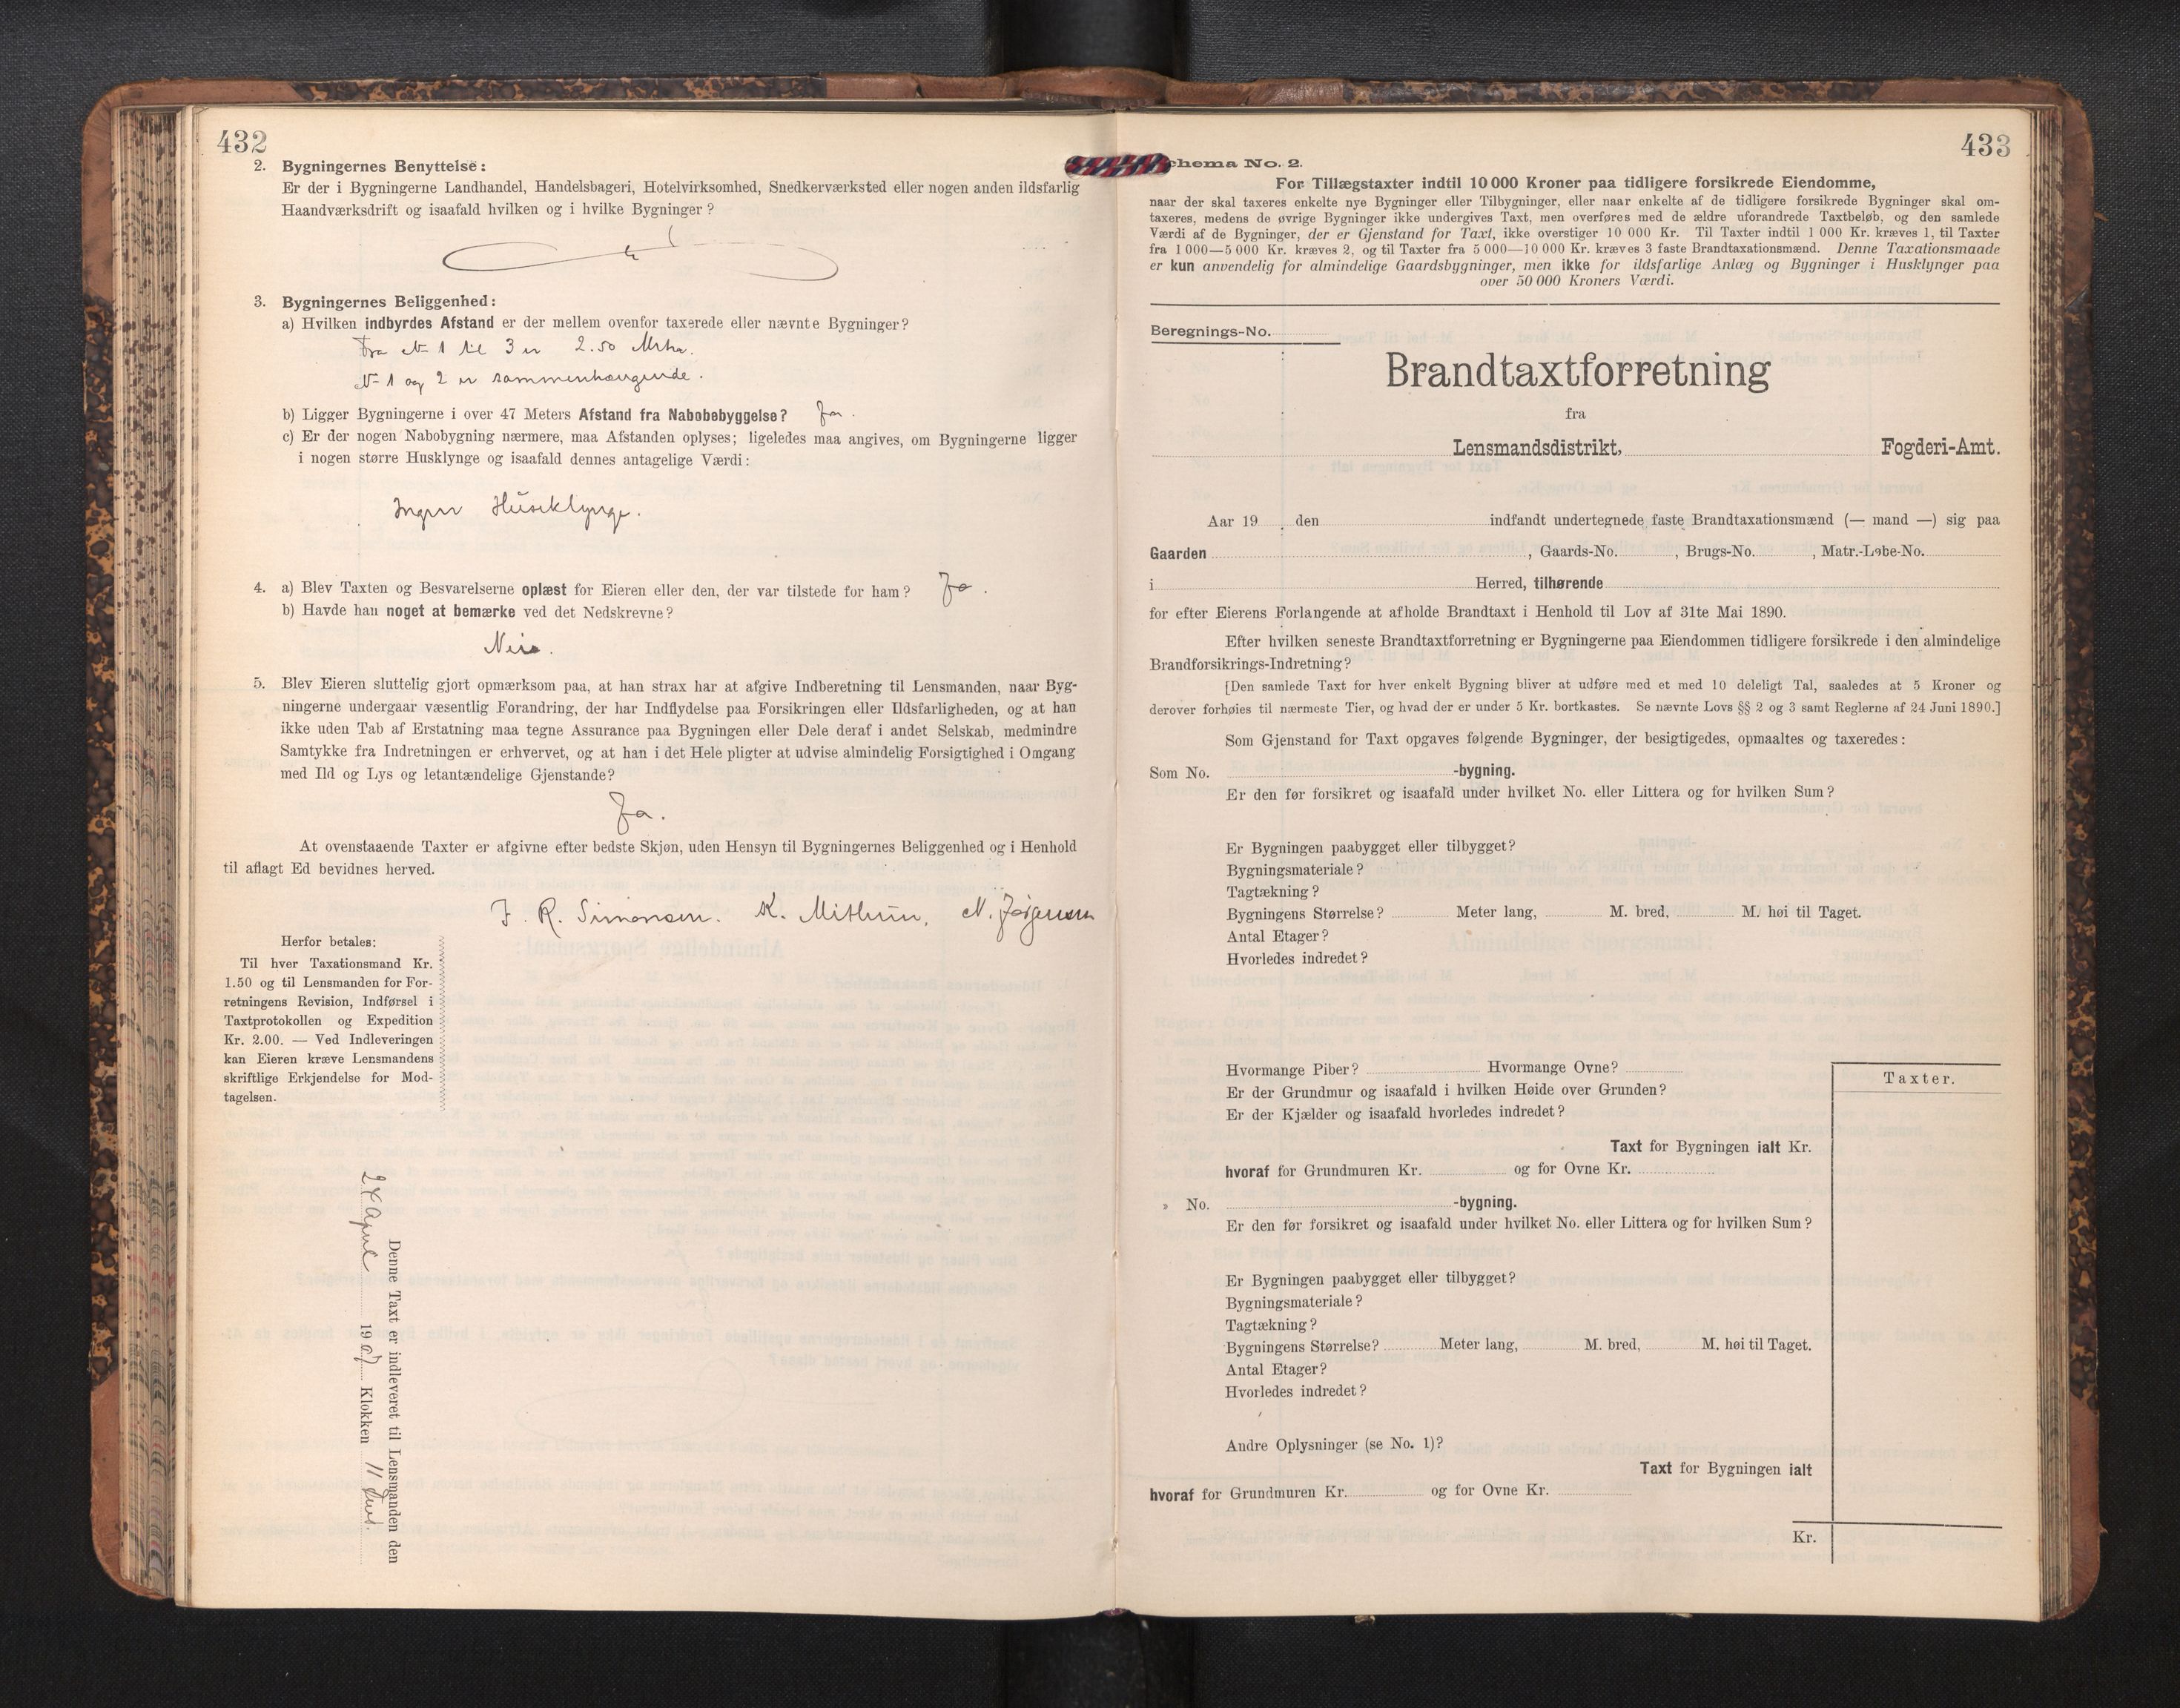 432
2. Bygningernes Benyttelse:
Er der i Bygningerne Landhandel, Handelsbageri, Hotelvirksomhed, Snedkerværksted eller nogen anden ildsfarlig
Haandværksdrift og isaafald hvilken og i hvilke Bygninger?
3. Bygningernes Beliggenhed:
a) Hvilken indbyrdes Afstand er der mellem ovenfor taxerede eller nævnte Bygninger?
Fra N 1 til 3 er 2.50 Mtr.
N 1 og 2 er sammenhængende.
b) Ligger Bygningerne i over 47 Meters Afstand fra Nabobebyggelse? Ja.
c) Er der nogen Nabobygning nærmere, maa Afstanden oplyses; ligeledes maa angives, om Bygningerne ligger
i nogen større Husklynge og isaafald dennes antagelige Værdi:
Ingen Husklynge.
4. a) Blev Taxten og Besvarelserne oplæst for Eieren eller den, der var tilstede for ham? Ja.
b) Havde han noget at bemærke ved det Nedskrevne?
Nei.
5. Blev Eieren sluttelig gjort opmærksom paa, at han strax har at afgive Indberetning til Lensmanden, naar Byg-
ningerne undergaar væsentlig Forandring, der har Indflydelse paa Forsikringen eller Ildsfarligheden, og at han
ikke uden Tab af Erstatning maa tegne Assurance paa Bygningen eller Dele deraf i andet Selskab, medmindre
Samtykke fra Indretningen er erhvervet, og at han i det Hele pligter at udvise almindelig Forsigtighed i Omgang
med Ild og Lys og letantændelige Gjenstande?
Ja.
At ovenstaaende Taxter er afgivne efter bedste Skjøn, uden Hensyn til Bygningernes Beliggenhed og i Henhold
til aflagt Ed bevidnes herved.
J. R. Simonsen. K. Mithun. N. Jørgensen
Herfor betales:
Til hver Taxationsmand Kr.
1.50 og til Lensmanden for For-
retningens Revision, Indførsel i
Taxtprotokollen og Expedition
Kr. 2.00. — Ved Indleveringen
kan Eieren kræve Lensmandens
skriftlige Erkjendelse for Mod-
tagelsen.
Denne Taxt er indleveret til Lensmanden den
April 1907 Klokken 11
433
chema No. 2.
For Tillægstaxter indtil 10 000 Kroner paa tidligere forsikrede Eiendomme,
naar der skal taxeres enkelte nye Bygninger eller Tilbygninger, eller naar enkelte af de tidligere forsikrede Bygninger skal om-
taxeres, medens de øvrige Bygninger ikke undergives Taxt, men overføres med de ældre uforandrede Taxtbeløb, og den samlede
Værdi af de Bygninger, der er Gjenstand for Taxt, ikke overstiger 10 000 Kr. Til Taxter indtil 1 000 Kr. kræves 1, til Taxter
fra 1 000—5 000 Kr. kræves 2, og til Taxter fra 5 000—10 000 Kr. kræves 3 faste Brandtaxationsmænd. Denne Taxationsmaade
er kun anvendelig for almindelige Gaardsbygninger, men ikke for ildsfarlige Anlæg og Bygninger i Husklynger paa
over 50 000 Kroners Værdi.
Beregnings-No.
Brandtaxtforretning
fra
Lensmandsdistrikt, Fogderi-Amt.
Aar 19 den indfandt undertegnede faste Brandtaxationsmænd (— mand —) sig paa
Gaarden , Gaards-No. , Brugs-No. , Matr.-Løbe-No.
i Herred, tilhørende
for efter Eierens Forlangende at afholde Brandtaxt i Henhold til Lov af 31te Mai 1890.
Efter hvilken seneste Brandtaxtforretning er Bygningerne paa Eiendommen tidligere forsikrede i den almindelige
Brandforsikrings-Indretning?
[Den samlede Taxt for hver enkelt Bygning bliver at udføre med et med 10 deleligt Tal, saaledes at 5 Kroner og
derover forhøies til nærmeste Tier, og hvad der er under 5 Kr. bortkastes. Se nævnte Lovs §§ 2 og 3 samt Reglerne af 24 Juni 1890.]
Som Gjenstand for Taxt opgaves følgende Bygninger, der besigtigedes, opmaaltes og taxeredes:
Som No. -bygning.
Er den før forsikret og isaafald under hvilket No. eller Littera og for hvilken Sum?
Er Bygningen paabygget eller tilbygget?
Bygningsmateriale?
Tagtækning?
Bygningens Størrelse? Meter lang, M. bred, M. høi til Taget.
Antal Etager?
Hvorledes indredet?
Hvormange Piber? Hvormange Ovne?
Taxter.
Er der Grundmur og isaafald i hvilken Høide over Grunden?
Er der Kjælder og isaafald hvorledes indredet?
Taxt for Bygningen ialt Kr.
hvoraf for Grundmuren Kr. og for Ovne Kr.
» No. -bygning.
Er den før forsikret og isaafald under hvilket No. eller Littera og for hvilken Sum?
Er Bygningen paabygget eller tilbygget?
Bygningsmateriale?
Tagtækning?
Bygningens Størrelse? Meter lang, M. bred, M. høi til Taget.
Antal Etager?
Hvorledes indredet?
Andre Oplysninger (se No. 1)?
Taxt for Bygningen ialt
hvoraf for Grundmuren Kr. og for Ovne Kr.
Kr.